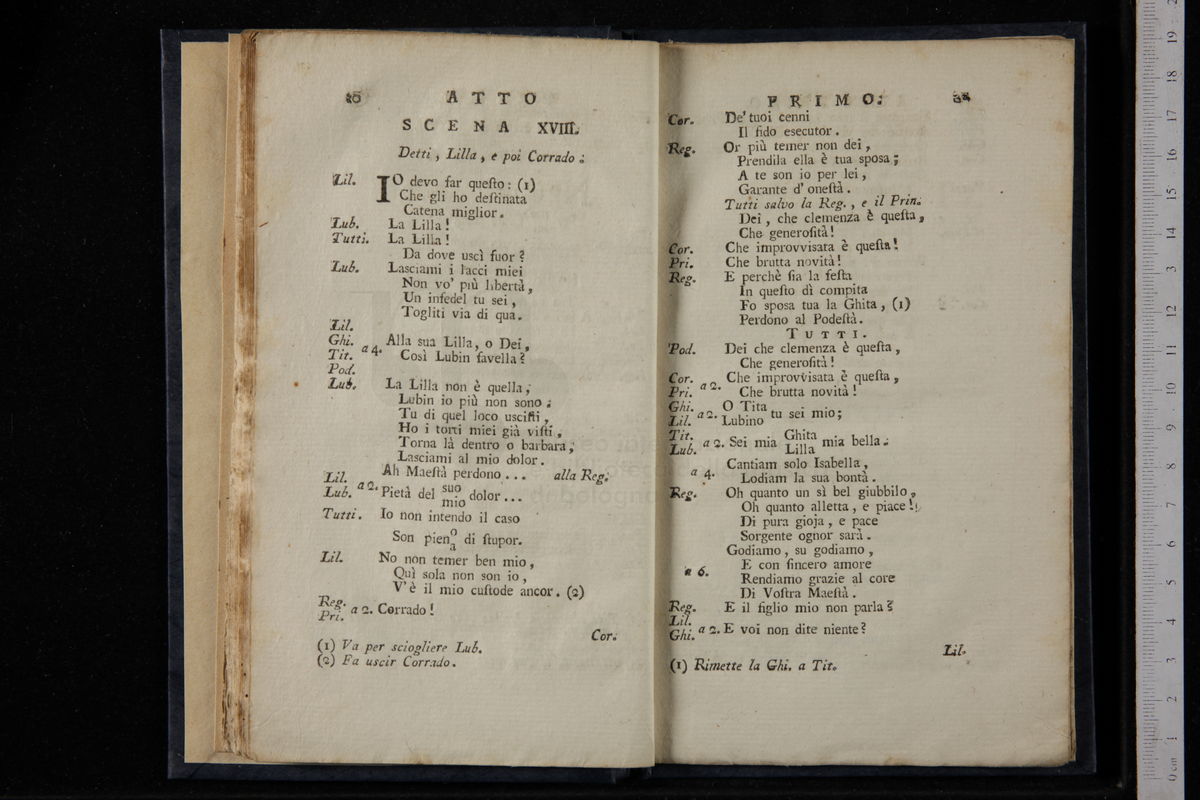 ATTO
SCENA XVIII.
Detti, Lilla, e poi Corrado.
Lil. IO devo far queſto: (1)
Che gli ho deſtinata
Catena miglior.
Lub. La Lilla!
Tutti. La Lilla!
Da dove uscì fuor?
Lub. Lasciami i lacci miei
Non vo' più libertà,
Un infedel tu sei,
Togliti via di qua.
Lil.
Ghi. Alla sua Lilla, o Dei,
Tit. a 4. Così Lubin favella?
Pod.
Lub. La Lilla non è quella,
Lubin io più non sono:
Tu di quel loco usciſti,
Ho i torti miei già viſti,
Torna là dentro o barbara,
Lasciami al mio dolor.
Lil. Ah Maeſtà perdono... alla Reg.
Lub. a 2. Pietà del suo mio dolor...
Tutti. Io non intendo il caso
Son pien o a di ſtupor.
Lil. No non temer ben mio,
Quì sola non son io,
V'è il mio cuſtode ancor. (2)
Reg.
Pri. a 2. Corrado!
Cor.
(1) Va per sciogliere Lub.
(2) Fa uscir Corrado.
PRIMO.
Cor. De' tuoi cenni
Il fido esecutor.
Reg. Or più temer non dei,
Prendila ella è tua sposa;
A te son io per lei,
Garante d' oneſtà.
Tutti salvo la Reg., e il Prin.
Dei, che clemenza è queſta,
Che generoſità!
Cor. Che improvvisata è queſta!
Pri. Che brutta novità!
Reg. E perchè ſia la feſta
In queſto dì compita
Fo sposa tua la Ghita, (1)
Perdono al Podeſtà.
TUTTI.
Pod. Dei che clemenza è queſta,
Che generoſità!
Cor. Che improvvisata è queſta,
Pri. a 2. Che brutta novità!
Ghi. O Tita
Lil. a 2. Lubino tu sei mio;
Tit. Ghita
Lub. a 2. Sei mia Lilla mia bella.
Cantiam solo Isabella,
a 4. Lodiam la sua bontà.
Reg. Oh quanto un sì bel giubbilo,
Oh quanto alletta, e piace!
Di pura gioja, e pace
Sorgente ognor sarà.
Godiamo, su godiamo,
E con ſincero amore
a 6. Rendiamo grazie al core
Di Voſtra Maeſtà.
Reg. E il figlio mio non parla?
Lil.
Ghi. a 2. E voi non dite niente?
Lil.
(1) Rimette la Ghi. a Tit.